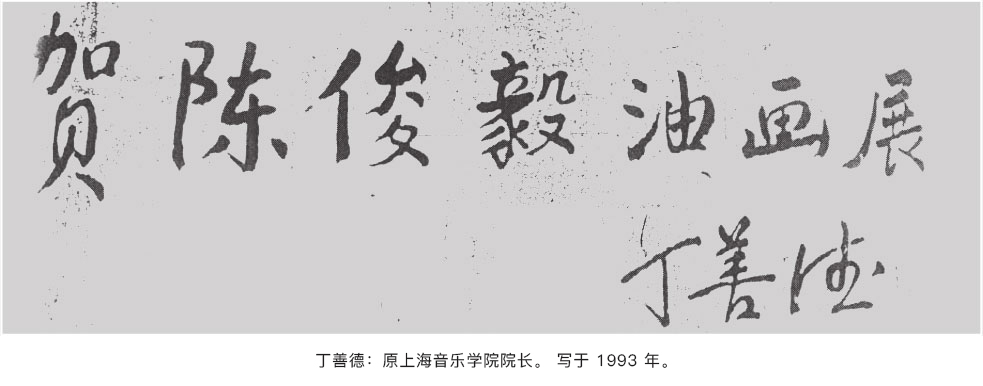 贺陈俊毅油画展
丁善德
丁善德：原上海音乐学院院长。 写于 1993 年。